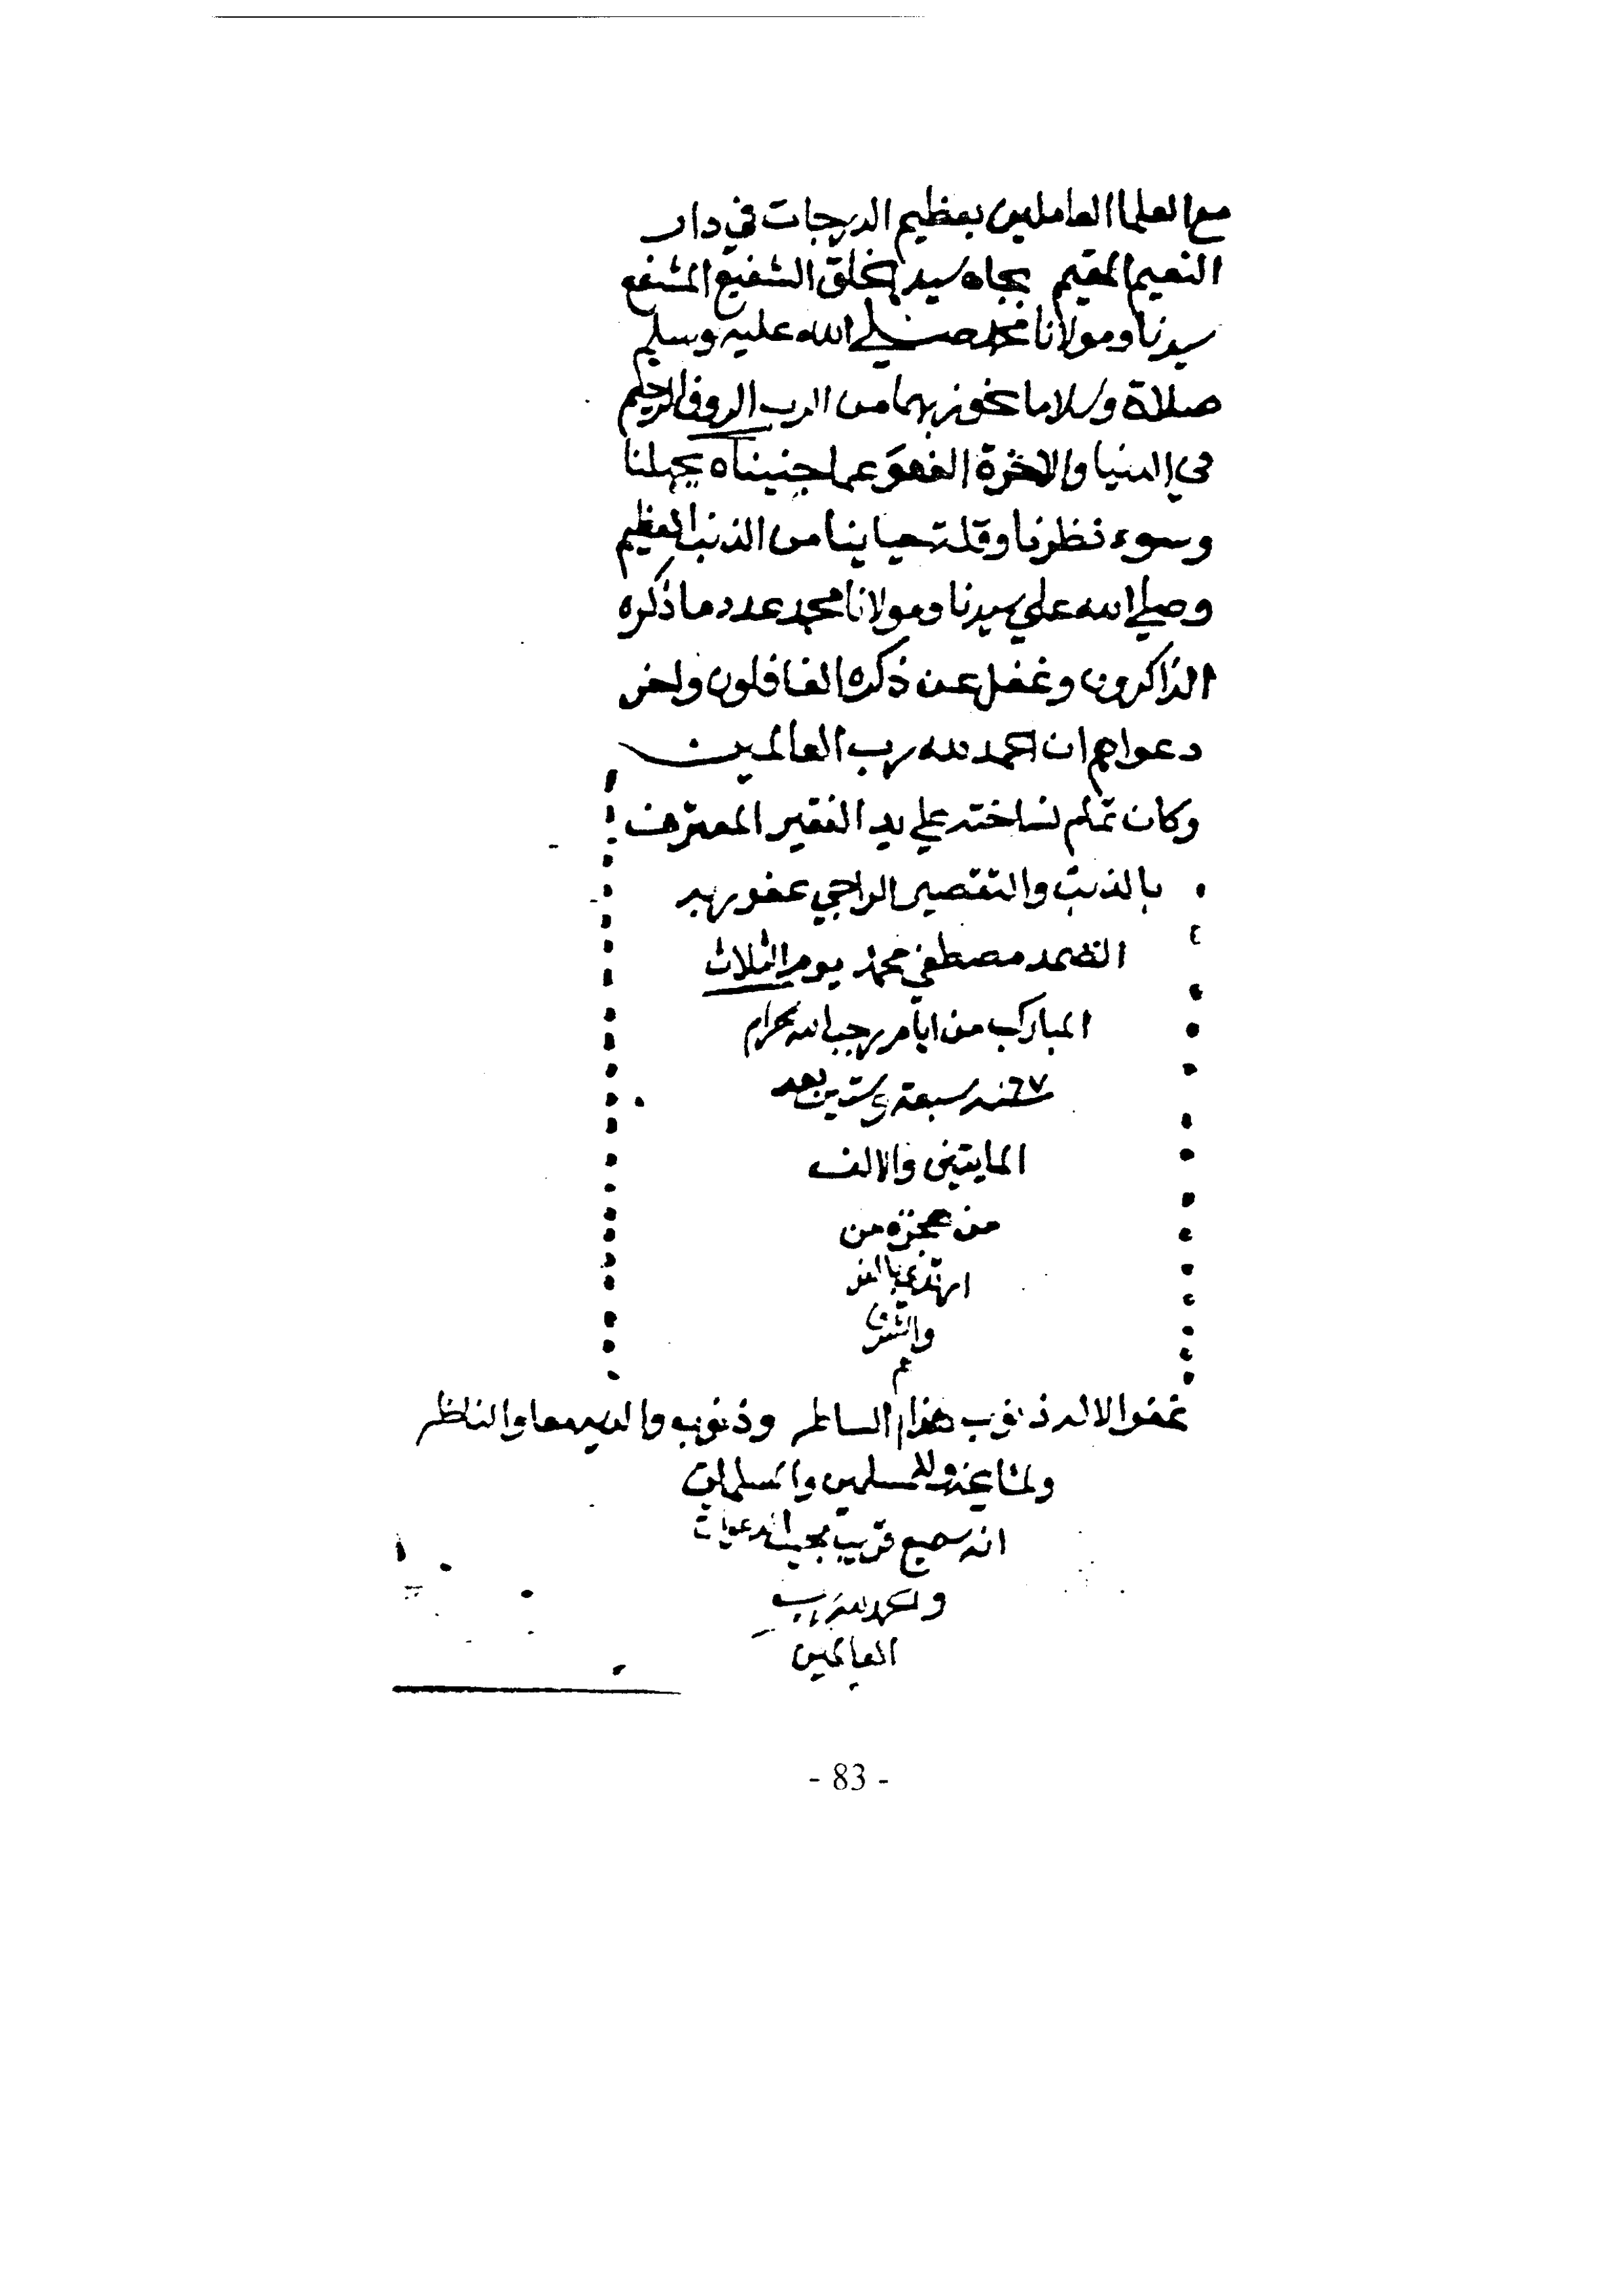 مع العلما العاملين بعظيم الدرجات في دار
النعيم المقيم بجاه سيد الخلق الشفيع المشفع
سيدنا ومولانا محمد صلي الله عليه وسلم
صلاة وسلاما نحوز بهما من الرب الروف الرحيم
في الدنيا والاخرة العفو عما جنيناه بجهلنا
وسوء نظرنا وقلة حياينا من الذنب العظيم
وصلي الله علي سيدنا ومولانا محمد عدد ما ذكره
الذاكرون وغفل عن ذكره الغافلون واخر
دعواهم ان الحمد لله رب العالمين
وكان تمام نساخته علي يد الفقير المعترف
بالذنب والتقصير الراجي عفو ربه
الصمد مصطفي محمد يوم الثلاث
المبارك من ايام رجب الله الحرام
٦٧ سنة سبعة وستين بعد
المايتين والالف
من هجرة من
ارتدي بالعز
والشرف
م
غفر الاله ذنوب هذا الساطر وذنوب والديه معا والناظر
ولمشايخه وللمسلمين والمسلمات
انه سميع قريب مجيب الدعوات
والحمد لله رب
العالمين
- 83 -